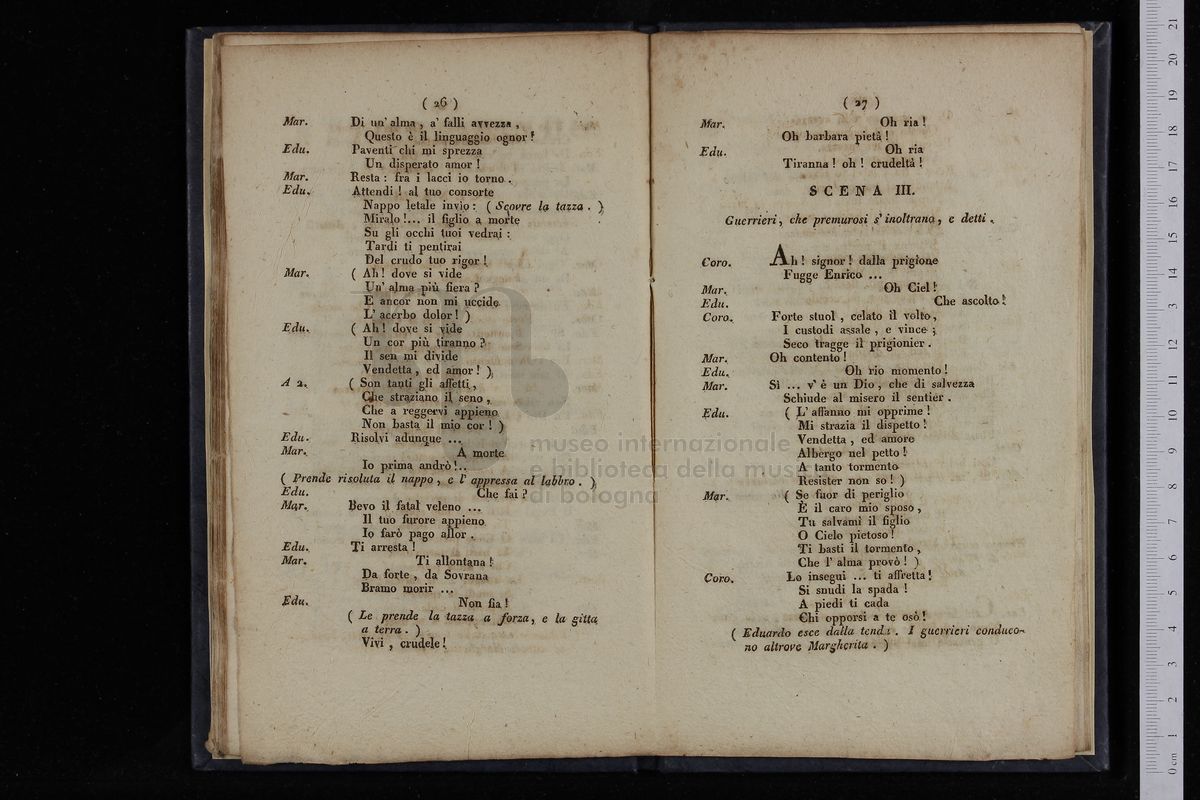 ( 26 )
Mar. Di un' alma , a' falli avvezza ,
Questo è il linguaggio ognor !
Edu. Paventi chi mi sprezza
Un disperato amor !
Mar. Resta : fra i lacci io torno .
Edu. Attendi ! al tuo consorte
Nappo letale invio : ( Scovre la tazza . )
Miralo !... il figlio a morte
Su gli occhi tuoi vedrai :
Tardi ti pentirai
Del crudo tuo rigor !
Mar. ( Ah ! dove si vide
Un' alma più fiera ?
E ancor non mi uccide
L' acerbo dolor ! )
Edu. ( Ah ! dove si vide
Un cor più tiranno ?
Il sen mi divide
Vendetta , ed amor ! )
A 2. ( Son tanti gli affetti ,
Che straziano il seno ,
Che a reggervi appieno
Non basta il mio cor ! )
Edu. Risolvi adunque ...
Mar. A morte
Io prima andrò !..
( Prende risoluta il nappo , e l' appressa al labbro . )
Edu. Che fai ?
Mar. Bevo il fatal veleno ...
Il tuo furore appieno
Io farò pago allor .
Edu. Ti arresta !
Mar. Ti allontana !
Da forte , da Sovrana
Bramo morir ...
Edu. Non fia !
( Le prende la tazza a forza , e la gitta
a terra . )
Vivi , crudele !
( 27 )
Mar. Oh ria !
Oh barbara pietà !
Edu. Oh ria
Tiranna ! oh ! crudeltà !
SCENA III.
Guerrieri , che premurosi s' inoltrano , e detti .
Coro. Ah ! signor ! dalla prigione
Fugge Enrico ...
Mar. Oh Ciel !
Edu. Che ascolto !
Coro. Forte stuol , celato il volto ,
I custodi assale , e vince ;
Seco tragge il prigionier .
Mar. Oh contento !
Edu. Oh rio momento !
Mar. Sì ... v' è un Dio , che di salvezza
Schiude al misero il sentier .
Edu. ( L' affanno mi opprime !
Mi strazia il dispetto !
Vendetta , ed amore
Albergo nel petto !
A tanto tormento
Resister non so ! )
Mar. ( Se fuor di periglio
È il caro mio sposo ,
Tu salvami il figlio
O Cielo pietoso !
Ti basti il tormento ,
Che l' alma provò ! )
Coro. Lo insegui ... ti affretta !
Si snudi la spada !
A piedi ti cada
Chi opporsi a te osò !
( Eduardo esce dalla tenda . I guerrieri conduco-
no altrove Margherita . )
museo internazionale
e biblioteca della musica
di bologna
0 cm 1 2 3 4 5 6 7 8 9 10 11 12 13 14 15 16 17 18 19 20 21